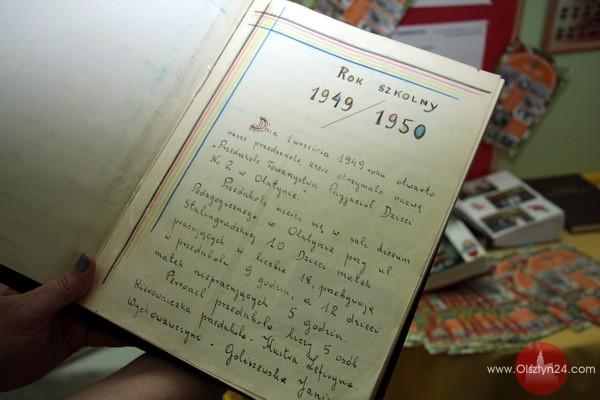 Rok szkolny
1949/1950
Dnia 1 września 1949 roku otwarto
nasze przedszkole, które otrzymało nazwę
„Przedszkole Towarzystwa Przyjaciół Dzieci
Nr 2 w Olsztynie.
Przedszkole mieści się w sali Liceum
Pedagogicznego w Olsztynie przy ul.
Stalingradzkiej 10 Dzieci matek
pracujących w liczbie 18, przebywają
w przedszkolu 9 godzin, a 12 dzieci
matek niepracujących 5 godzin.
Personel przedszkola liczy 5 osób.
Kierowniczka przedszkola - Kustra Zefiryna
Wychowawczyni - Goliszewska Jani
www.Olsztyn24.com